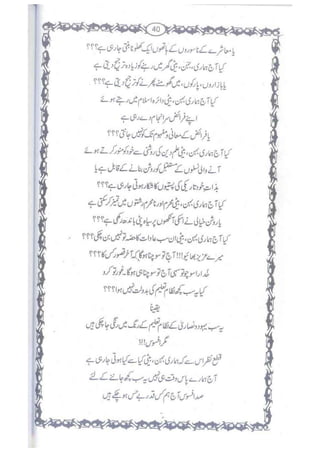 40
یا معاشرے کے ناسوروں کے ہاتھوں ایک کھلونا بنتی جا رہی ہے؟؟؟
کیا آج ہماری، بہن، بیٹی گھر میں رہنے کو زیادہ ترجیح دیتی ہے
یا بازاروں، پارکوں، میں گھومنے پھرنے کو ترجیح دیتی ہے؟؟؟
کیا آج ہماری، بہن، بیٹی دائرہ اسلام میں رہتے ہوئے
اپنے فرائض سرانجام دے رہی ہے
یا فرائض کے معانی و مفہوم تک کو نہیں جانتی؟؟؟
کیا آج ہماری بہن، بیٹی علم دین کی روشنی سے خود کو منور کرتے ہوئے
آنے والی نسلوں کے مستقبل کو روشن بنانے کے قابل ہے یا
بذات خود تاریکی کی پستیوں کا شکار ہوتی جا رہی ہے؟؟؟
کیا آج ہماری بہن، بیٹی محرم اور نامحرم رشتوں میں تمیز کر سکتی ہے
یا روشن خیالی نے اسکی آنکھوں پر سیاہ پٹی باندھ رکھی ہے؟؟؟
کیا آج ہماری بہن، بیٹی ان سب عادات کا حصہ تو نہیں بن چکی؟؟؟
میرے عزیز بھائیو!!! آج تو سوچنا ہوگا کہ آخر قصور کس کا؟؟؟
خدارا سوچو تو سہی آج تو سوچنا ہوگا، غور تو کرو
کیا یہ سب کچھ نظام تعلیم کی بدولت نہیں ہوا؟؟؟
یقیناً
یہ سب یہود و نصاریٰ کے نظام تعلیم کے رنگ میں رنگی جا چکی ہیں
مگر افسوس!!!
قطع نظر اس سے کہ ہماری بہن، بیٹی کیا سے کیا ہوتی جا رہی ہے
آج ہمارے پاس وقت ہی نہیں یہ سب کچھ جاننے کے لئے
صد افسوس آج ہم کس قدر بے حس ہو چکے ہیں